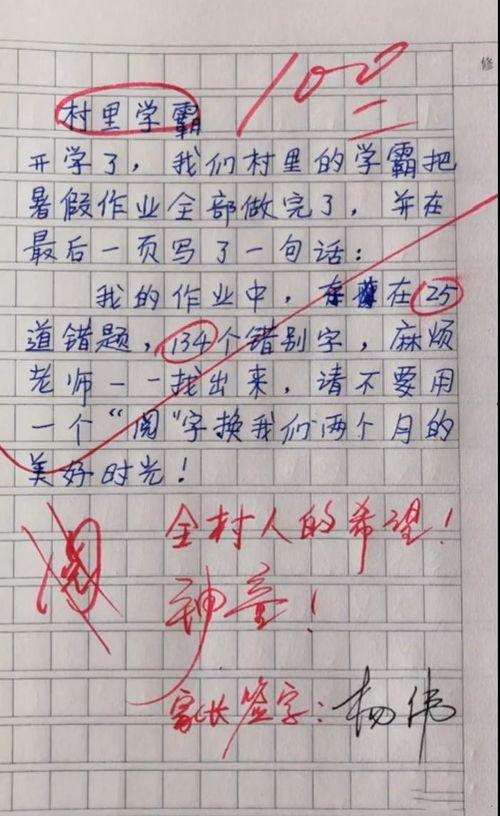 修
100
村里学霸
开学了，我们村里的学霸把
暑假作业全部做完了，并在
最后一页写了一句话：
我的作业中，在25
道错题，134个错别字，麻烦
老师一一找出来，请不要用
一个“阅”字换我们两个月的
美好时光！
阅
全村人的希望！
神童！
家长签字：杨伟